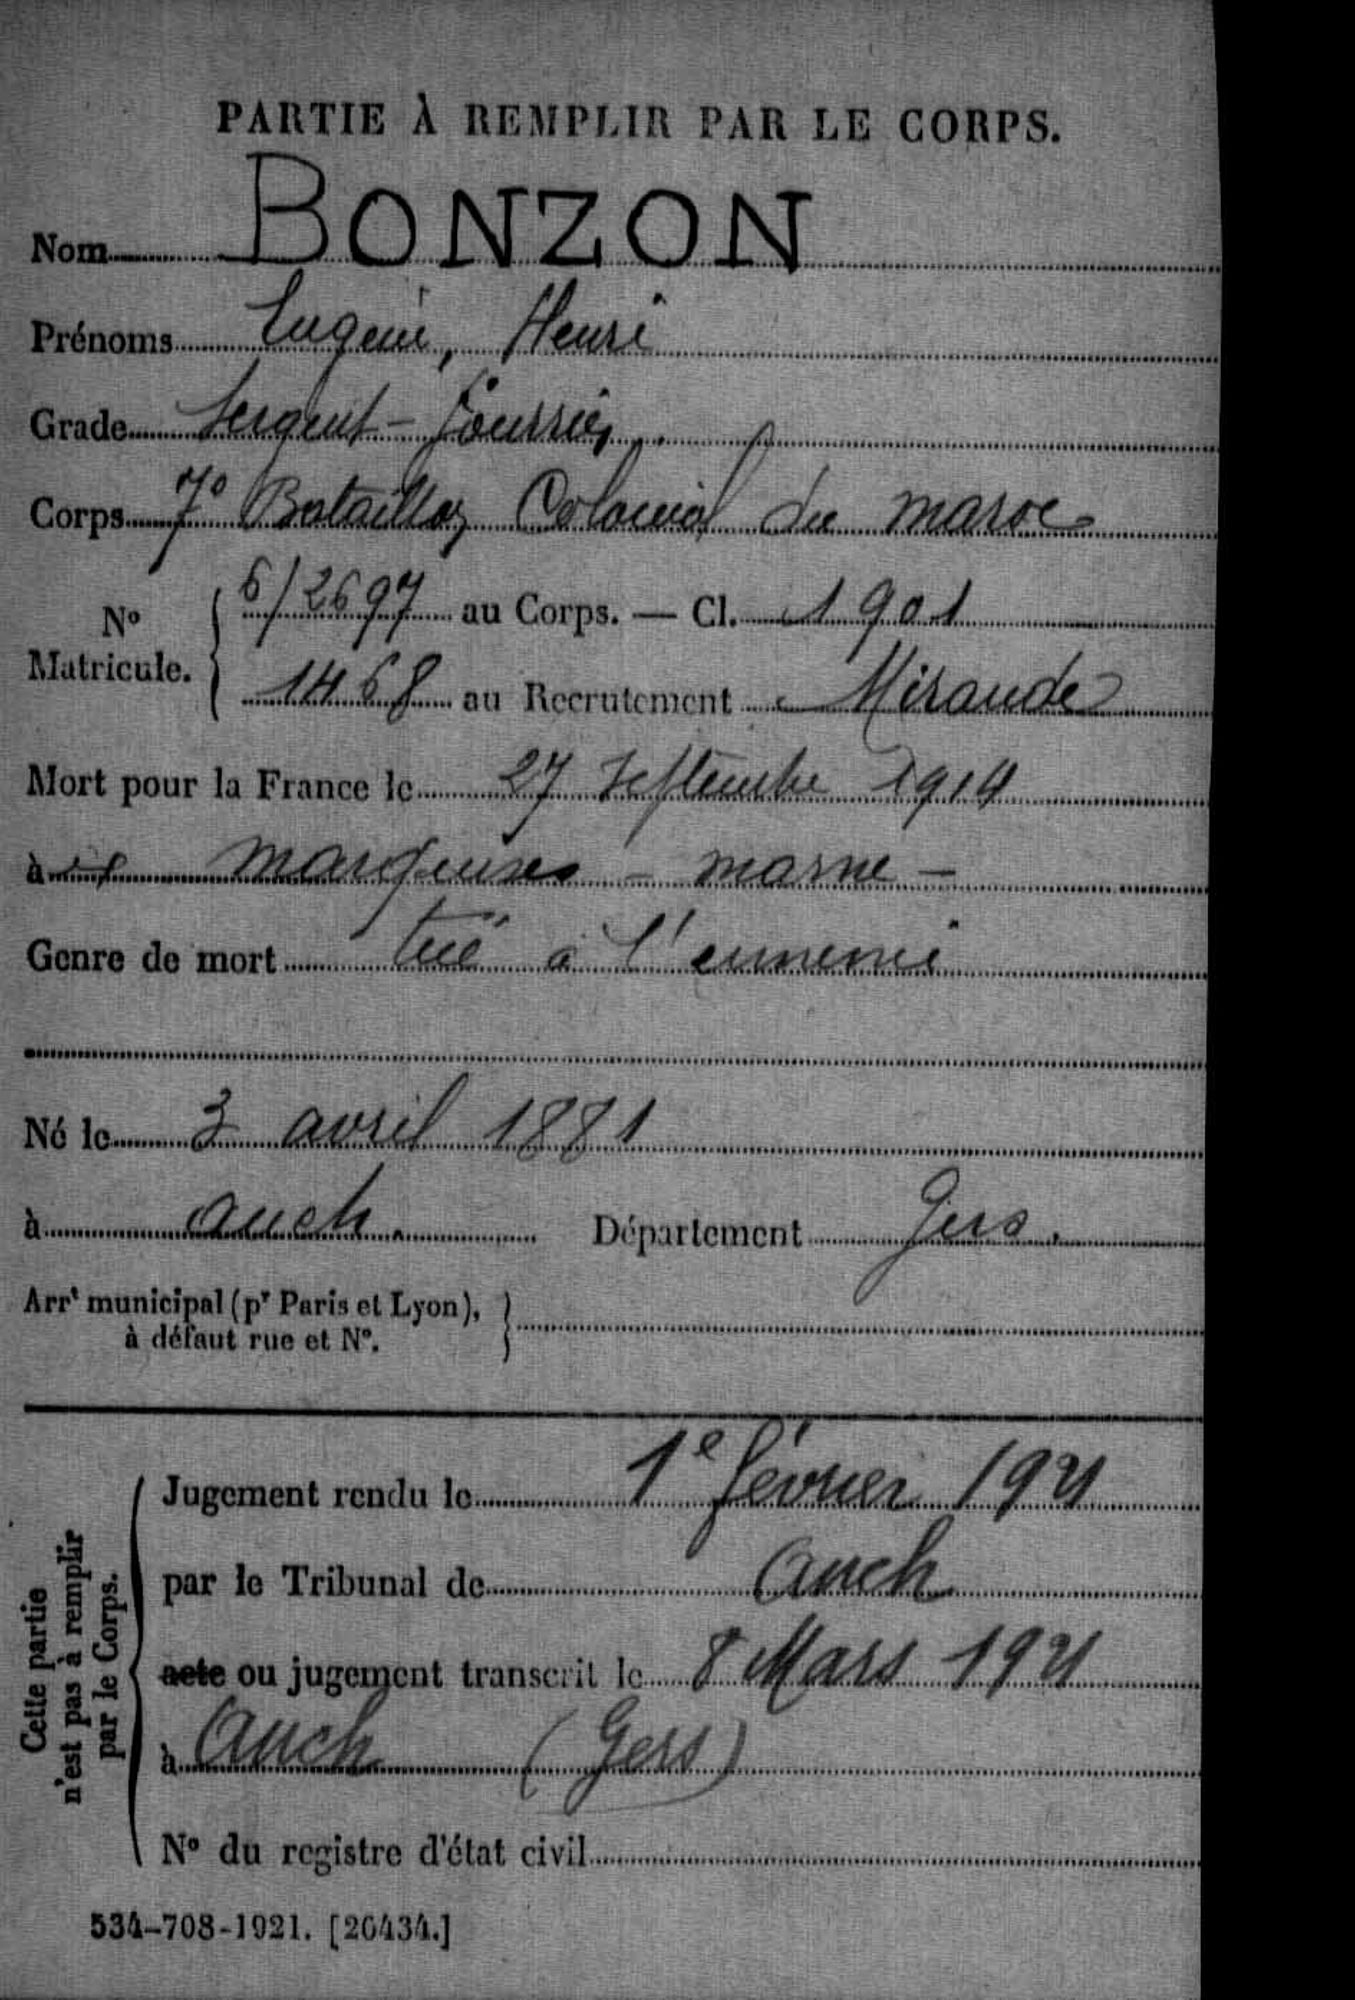 PARTIE À REMPLIR PAR LE CORPS.
Nom BONZON
Prénoms Eugène, Henri
Grade Sergent-Fourrier
Corps 7e Bataillon Colonial du Maroc
No Matricule. 6/2697 au Corps. — Cl. 1901
1468 au Recrutement Mirande
Mort pour la France le 27 Septembre 1914
à Marne -
Genre de mort tué à l'ennemi
Né le 3 avril 1881
à Auch. Département Gers.
Arrt municipal (pr Paris et Lyon),
à défaut rue et No.
Cette partie
n'est pas à remplir
par le Corps.
Jugement rendu le 1e février 1921
par le Tribunal de Auch
acte ou jugement transcrit le 8 Mars 1921
à Auch (Gers)
No du registre d'état civil
534-708-1921. [26434.]